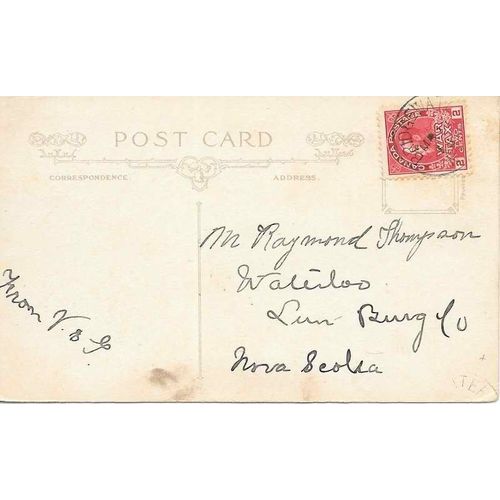 POST CARD
CORRESPONDENCE
ADDRESS.
CANADA POSTAGE
WAR TAX
2 CENTS 2
M Raymond Thompson
Waterloo
Lun Burg Co
Nova Scotia
From V. & G.